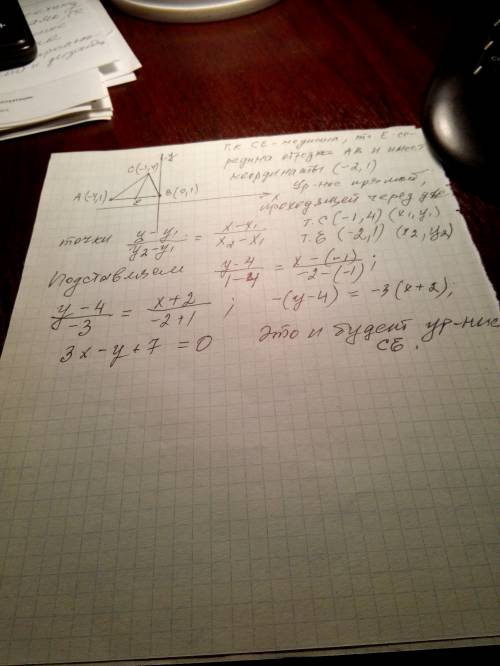 Т.к. CE-медиана, то E-се-
редина отрезка AB и имеет
координаты (-2,1)
Ур-ние прямой,
проходящей через две
y
C(-1,4)
A(-4,1)
B(0,1)
E
x
точки (y-y₁)/(y₂-y₁) = (x-x₁)/(x₂-x₁)
т.C(-1,4) (x₁,y₁)
т.E(-2,1) (x₂,y₂)
Подставляем (y-4)/(1-4) = (x-(-1))/(-2-(-1));
(y-4)/(-3) = (x+2)/(-2+1); -(y-4) = -3(x+2),
3x-y+7=0 Это и будет ур-ние
CE.